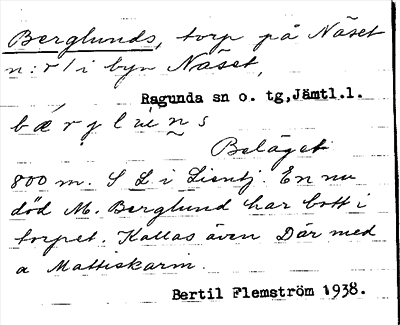 Berglunds, torp på Näset
n:r 1 i byn Näset,
Ragunda sn o. tg, Jämtl.l.
Beläget
800 m. S L i Lientj. En nu
död M. Berglund har bott i
torpet. Kallas även Där med
a Mattiskarin.
Bertil Flemström 1938.